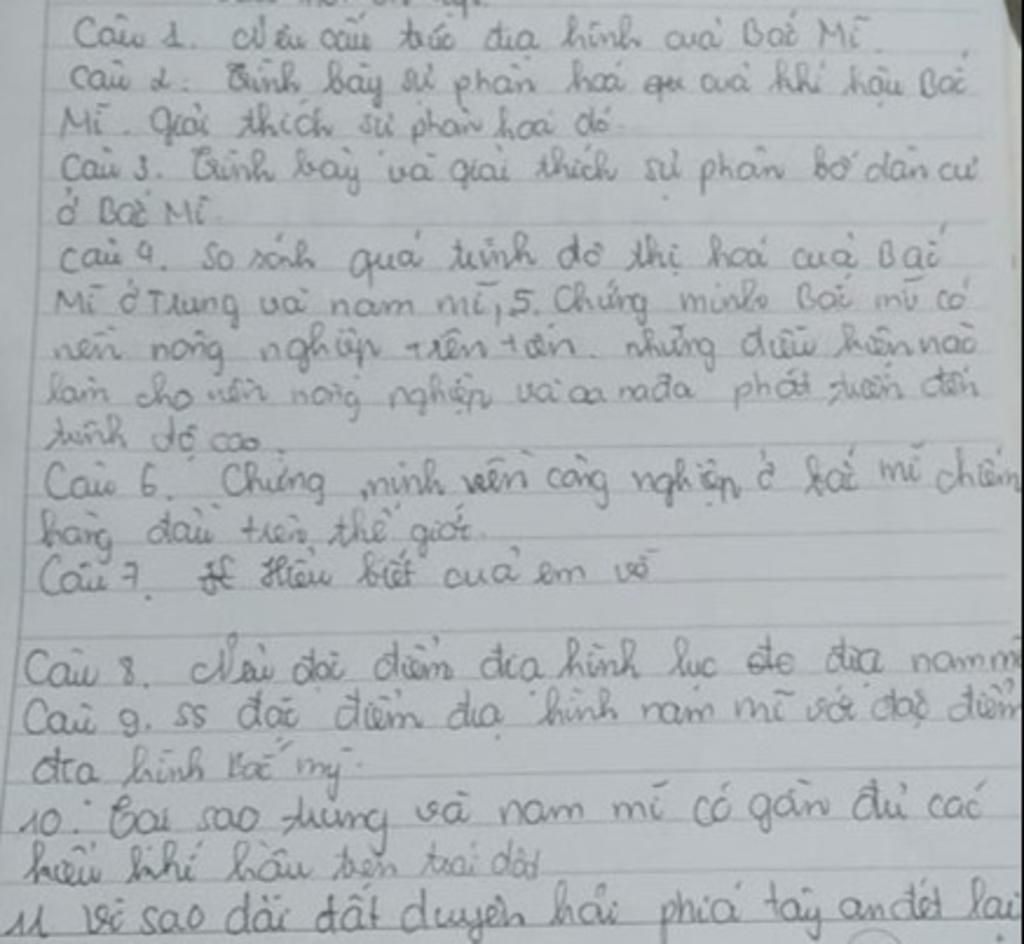 Câu 1. Nêu cấu trúc địa hình của Bắc Mĩ.
Câu 2. Trình bày sự phân hoá của khí hậu Bắc
Mĩ. Giải thích sự phân hoá đó.
Câu 3. Trình bày và giải thích sự phân bố dân cư
ở Bắc Mĩ.
Câu 4. So sánh quá trình đô thị hoá của Bắc
Mĩ ở Trung và nam mĩ, 5. Chứng minh Bắc mĩ có
nền nông nghiệp tiên tiến. những điều kiện nào
làm cho nền nông nghiệp và ca nađa phát triển đến
trình độ cao.
Câu 6. Chứng minh nền công nghiệp ở Bắc mĩ chiếm
hàng đầu trên thế giới.
Câu 7. Hiểu biết của em về
Câu 8. Nêu đặc điểm địa hình lục địa nam mĩ
Câu 9. SS đặc điểm địa hình nam mĩ với đặc điểm
địa hình Bắc mỹ.
10. Tại sao trung và nam mĩ có gần đủ các
kiểu khí hậu trên trái đất
11 Vì sao dải đất duyên hải phía tây anđét lại